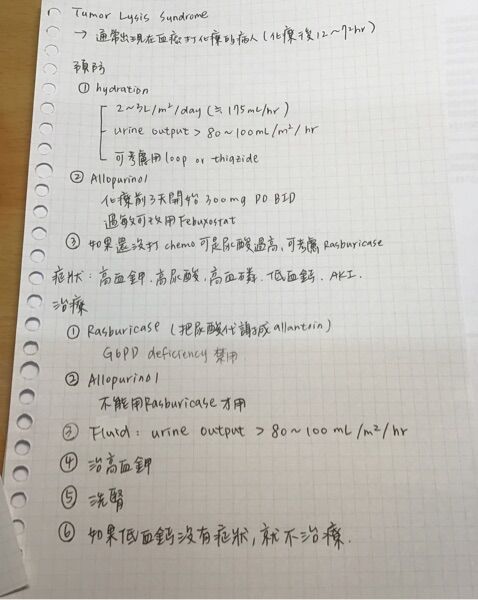 Tumor Lysis Syndrome
→ 通常出現在血癌打化療的病人 (化療後12~72hr)
預防
① hydration
2~3L/m²/day (≒ 175mL/hr)
urine output > 80~100mL/m²/hr
可考慮用 loop or thiazide
② Allopurinol
化療前3天開始 300mg PO BID
過敏可改用 Febuxostat
③ 如果還沒打 chemo 可是尿酸過高, 可考慮 Rasburicase
症狀: 高血鉀、高尿酸、高血磷、低血鈣、AKI.
治療
① Rasburicase (把尿酸代謝成 allantoin)
G6PD deficiency 禁用
② Allopurinol
不能用Rasburicase才用
③ Fluid: urine output > 80~100 mL/m²/hr
④ 治高血鉀
⑤ 洗腎
⑥ 如果低血鈣沒有症狀, 就不治療.